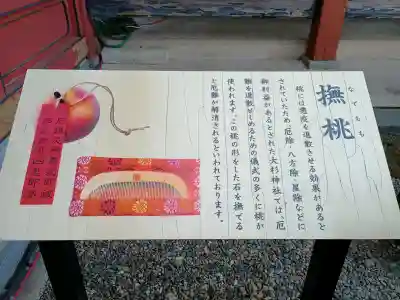 なでもも
撫桃
桃には悪疫を退散させる効果があると
されていたため「厄除・八方除・星除などに
御利益があるとされた大杉神社では、厄
難を退散せしめるための儀式の多くに桃が
使われます。この桃の形をした石を撫でる
と厄難が解消されるといわれております。